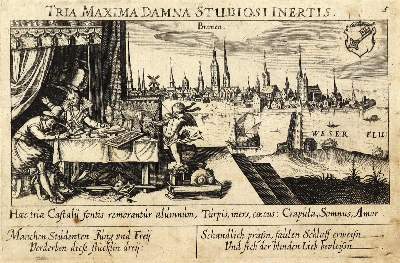 TRIA MAXIMA DAMNA STUDIOSI INERTIS.
5
Bremen
WESER FLU
Hæc tria Castalij fontis remorantur alumnum, Turpis, iners, cæcus: Crapula, Somnus, Amor
Manchen Studenten Jung und Frey
Verderben diese stücklin drey:
Schandlich prassn, faulen Schlaff
Und sich der blinden Lieb